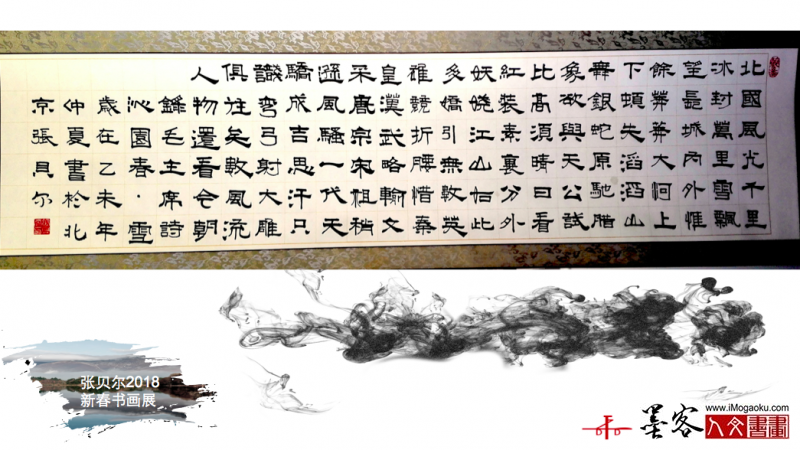 北國風光千里
冰封萬里雪飄
望長城內外惟
餘莽莽大河上
下頓失滔滔山
舞銀蛇原馳腊
象欲與天公試
比高須晴日看
紅裝素裹分外
妖嬈江山如此
多嬌引無數英
雄競折腰惜秦
皇漢武略輸文
采唐宗宋祖稍
遜風騷一代天
驕成吉思汗只
識彎弓射大雕
俱往矣數風流
人物還看今朝
錄毛主席詩
沁園春·雪
歲在乙未年
仲夏書於北
京張貝尔
张贝尔2018
新春书画展
墨客
www.iMogaoku.com
人文書畫